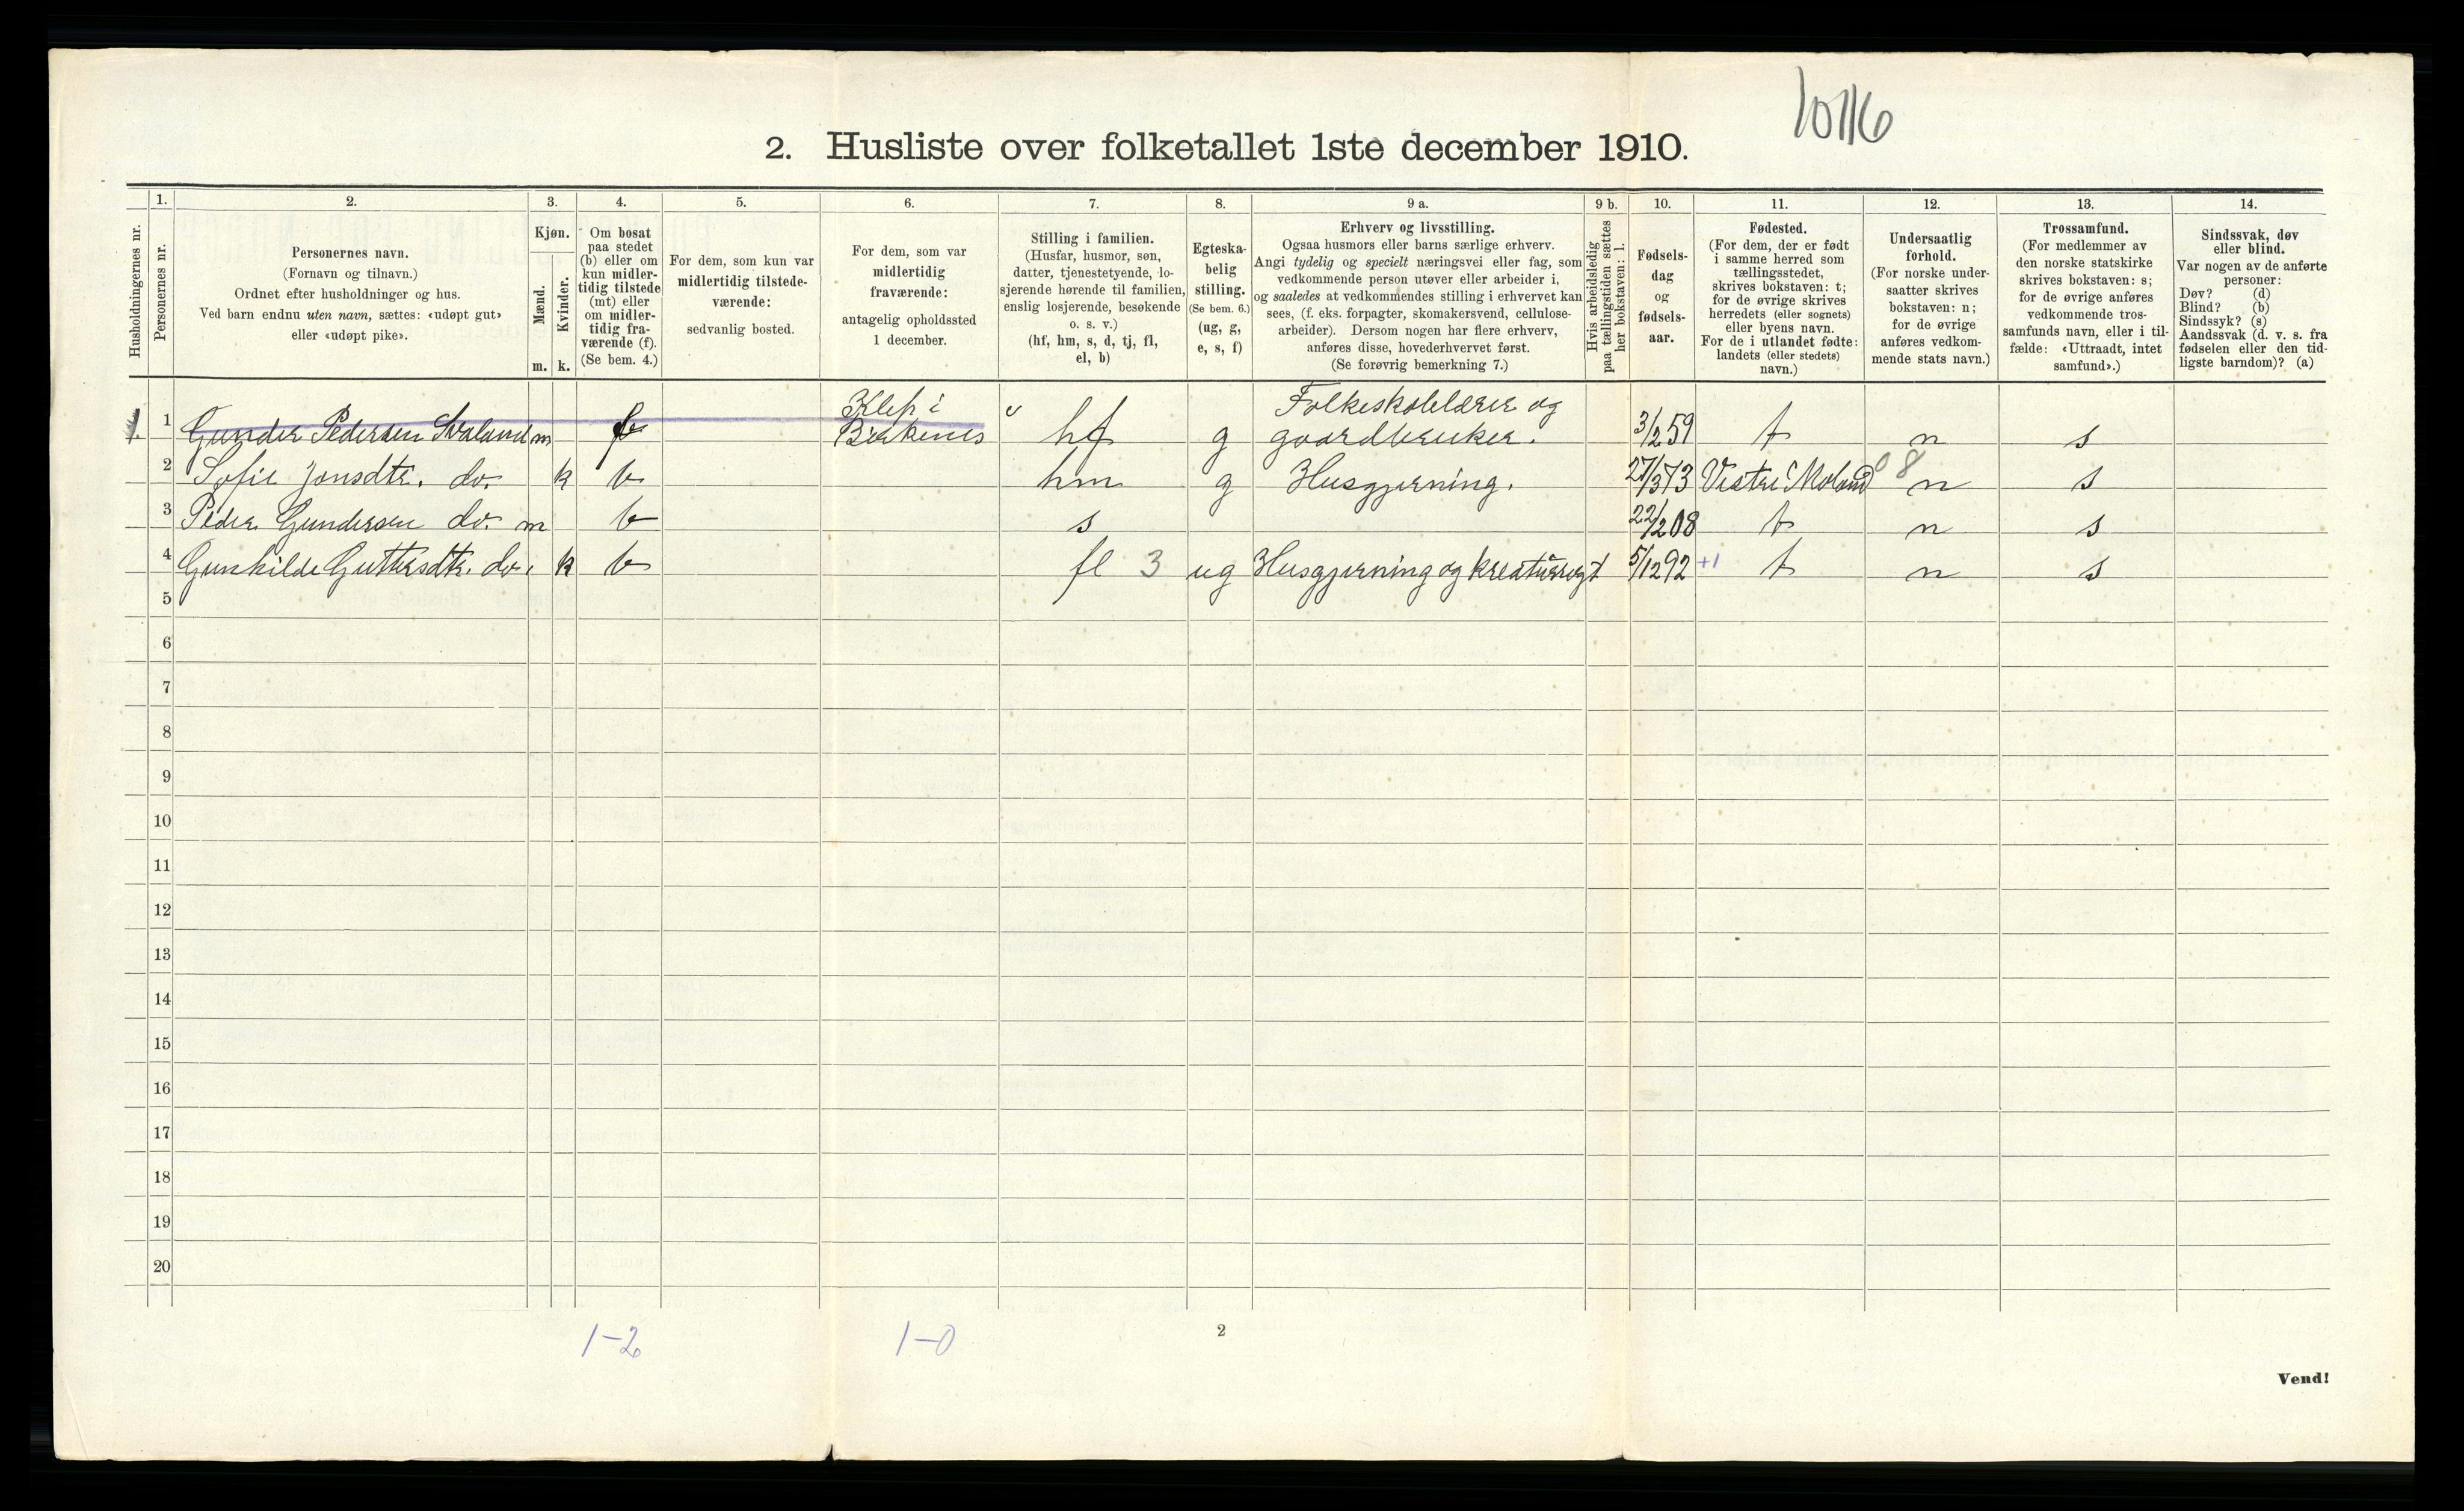 10116
2. Husliste over folketallet 1ste december 1910.
1. 2. 3. 4. 5. 6. 7. 8. 9 a. 9 b. 10. 11. 12. 13. 14.
Husholdningernes nr.
Personernes nr.
Personernes navn.
(Fornavn og tilnavn.)
Ordnet efter husholdninger og hus.
Ved barn endnu uten navn, sættes: «udøpt gut»
eller «udøpt pike».
Kjøn.
Mænd.
Kvinder.
m. k.
Om bosat
paa stedet
(b) eller om
kun midler-
tidig tilstede
(mt) eller
om midler-
tidig fra-
værende (f).
(Se bem. 4.)
For dem, som kun var
midlertidig tilstede-
værende:
sedvanlig bosted.
For dem, som var
midlertidig
fraværende:
antagelig opholdssted
1 december.
Stilling i familien.
(Husfar, husmor, søn,
datter, tjenestetyende, lo-
sjerende hørende til familien,
enslig losjerende, besøkende
o. s. v.)
(hf, hm, s, d, tj, fl,
el, b)
Egteska-
belig
stilling.
(Se bem. 6.)
(ug, g,
e, s, f)
Erhverv og livsstilling.
Ogsaa husmors eller barns særlige erhverv.
Angi tydelig og specielt næringsvei eller fag, som
vedkommende person utøver eller arbeider i,
og saaledes at vedkommendes stilling i erhvervet kan
sees, (f. eks. forpagter, skomakersvend, cellulose-
arbeider). Dersom nogen har flere erhverv,
anføres disse, hovederhvervet først.
(Se forøvrig bemerkning 7.)
Hvis arbeidsledig
paa tællingstiden sættes
her bokstaven: l.
Fødsels-
dag
og
fødsels-
aar.
Fødested.
(For dem, der er født
i samme herred som
tællingsstedet,
skrives bokstaven: t;
for de øvrige skrives
herredets (eller sognets)
eller byens navn.
For de i utlandet fødte:
landets (eller stedets)
navn.)
Undersaatlig
forhold.
(For norske under-
saatter skrives
bokstaven: n;
for de øvrige
anføres vedkom-
mende stats navn.)
Trossamfund.
(For medlemmer av
den norske statskirke
skrives bokstaven: s;
for de øvrige anføres
vedkommende tros-
samfunds navn, eller i til-
fælde: «Uttraadt, intet
samfund».)
Sindssvak, døv
eller blind.
Var nogen av de anførte
personer:
Døv? (d)
Blind? (b)
Sindssyk? (s)
Aandssvak (d. v. s. fra
fødselen eller den tid-
ligste barndom)? (a)
Klep i Folkeskolelærer og
1. 1 Gunder Pedersen Svaland m f Birkenes hf g gaardbruker. 3/2 59 t n s
2 Sofie Jonsdtr. do. k b hm g Husgjerning. 27/3 73 Vestre Moland 08 n s
3 Peder Gundersen do. m b s 22/2 08 t n s
4 Gunhilde Guttersdtr. do. k b fl 3 ug Husgjerning og kreaturrøgt 5/12 92 +1 t n s
5
6
7
8
9
10
11
12
13
14
15
16
17
18
19
20
1-2 1-0 2
Vend!